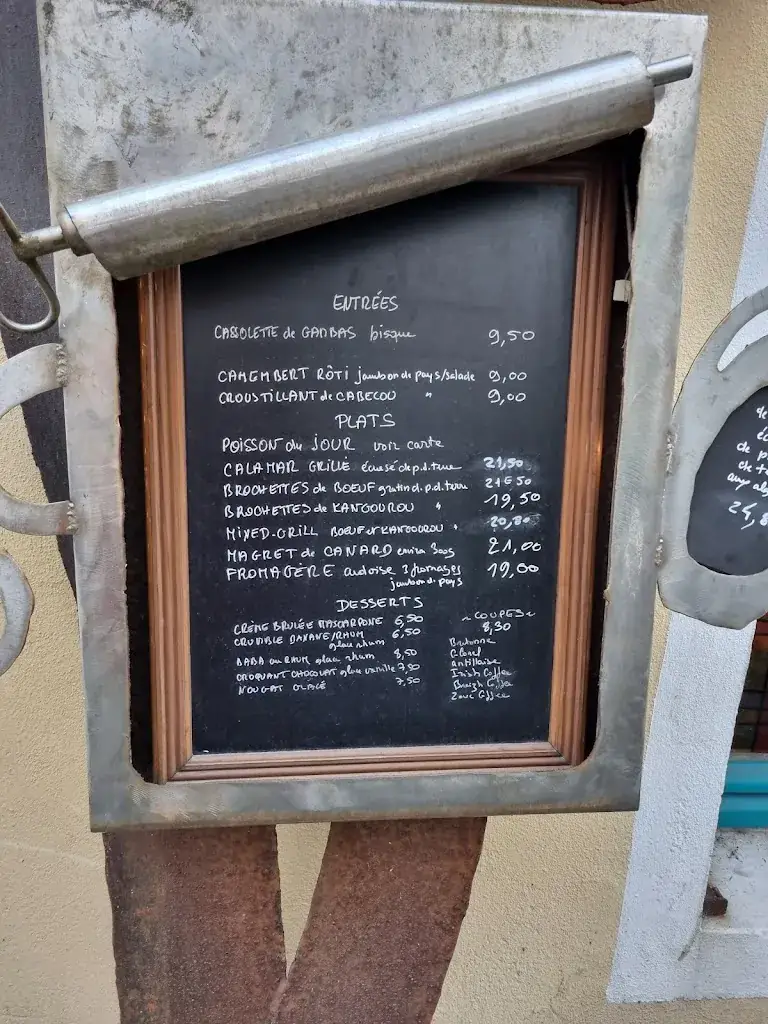 ENTRÉES
CASSOLETTE de GAMBAS bisque 9,50
CAMEMBERT RÔTI jambon de pays/salade 9,00
CROUSTILLANT de CABECOU " 9,00
PLATS
POISSON du JOUR voir carte
CALAMAR GRILLÉ écrasé de p.d.terre 21,50
BROCHETTES de BOEUF gratin d.p.d.terre 21€50
BROCHETTES de KANGOUROU " 19,50
MIXED-GRILL BOEUF et KANGOUROU " 20,80
MAGRET de CANARD environ 300g 21,00
FROMAGÈRE ardoise 3 fromages 19,00
jambon d. pays
DESSERTS
CRÈME BRULÉE MASCARPONE 6,50
CRUMBLE BANANE/RHUM 6,50
glace rhum
BABA au RHUM glace rhum 8,50
CROQUANT CHOCOLAT glace vanille 7,90
NOUGAT GLACÉ 7,50
~COUPES~
8,30
Bretonne
Colonel
Antillaise
Irish Coffee
Breizh Coffee
Zouc Coffee
de p
de te
24,8